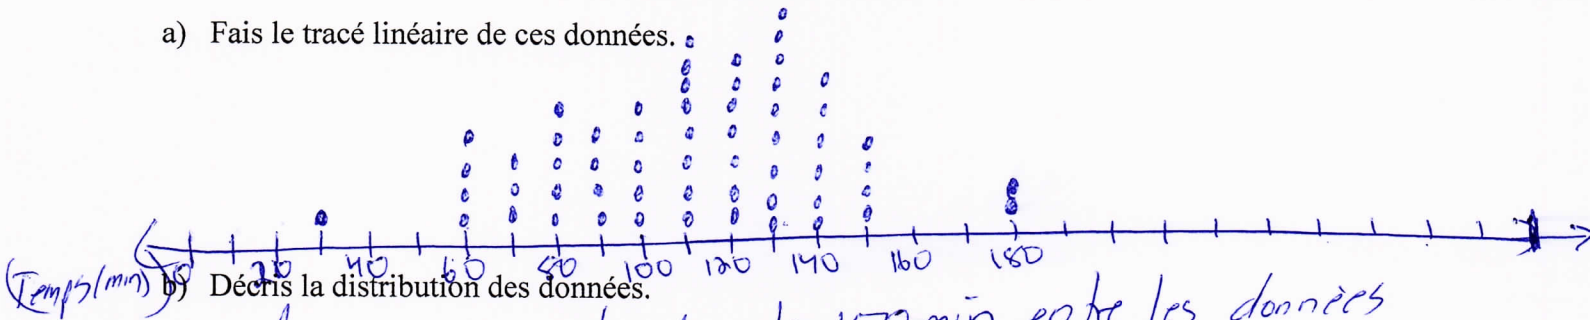 a) Fais le tracé linéaire de ces données.
0 20 40 60 80 100 120 140 160 180
(Temps(min)
b) Décris la distribution des données.
min entre les données